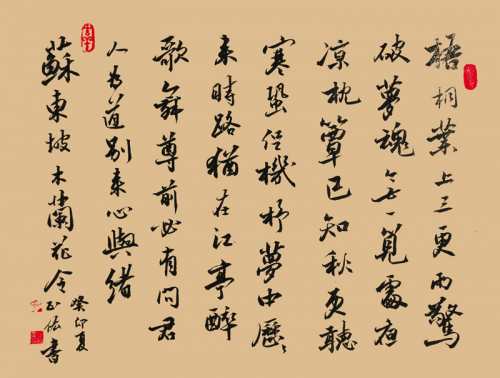 梧桐葉上三更雨驚
破夢魂無覓處夜
凉枕簟已知秋更聽
寒蛩促機杼夢中歷〻
来時路猶在江亭醉
歌舞尊前必有問君
人为道别来心與緒
蘇東坡木蘭花令
癸卯夏
書